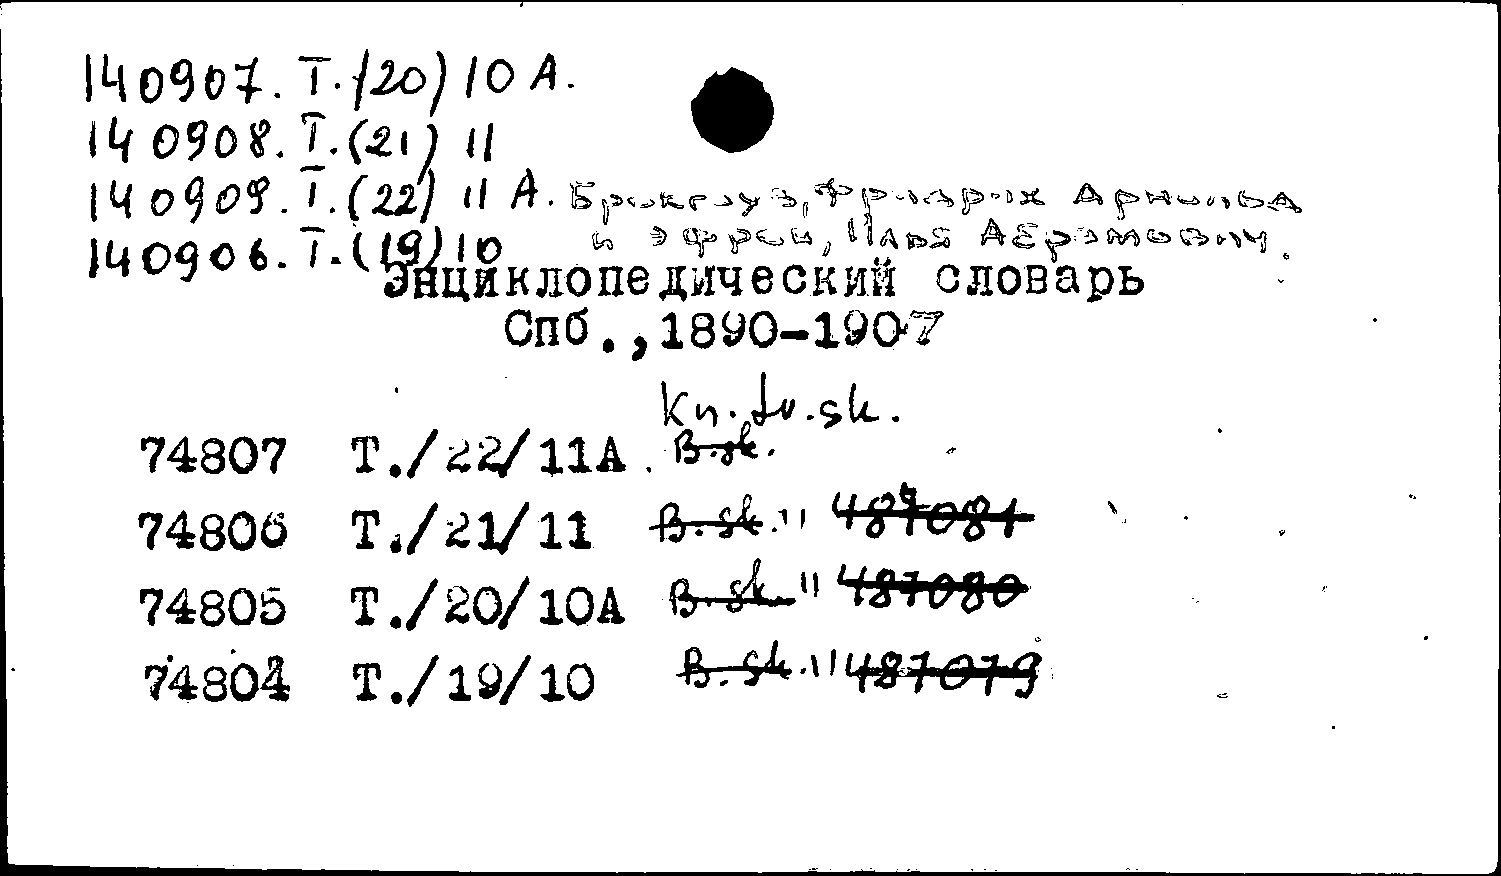 140907. Т. (20) 10 А.
140908. Т. (21) 11
140909. Т. (22) 11 А. Брокгауз, Фридрих Арнольд
140906. Т. (19) 10 и Эфрон, Илья Абрамович.
Энциклопедический словарь
Спб.,1890-1907
Kn. tv. sk.
74807 Т./22/11А. B.sk.
74806 Т./21/11 B.sk. " 487081
74805 Т./20/10А B.sk. " 487080
74804 Т./19/10 B.sk. " 487079